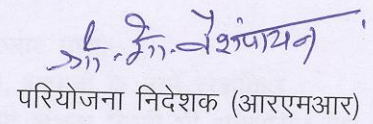 वैशंपायन
परियोजना निदेशक (आरएमआर)